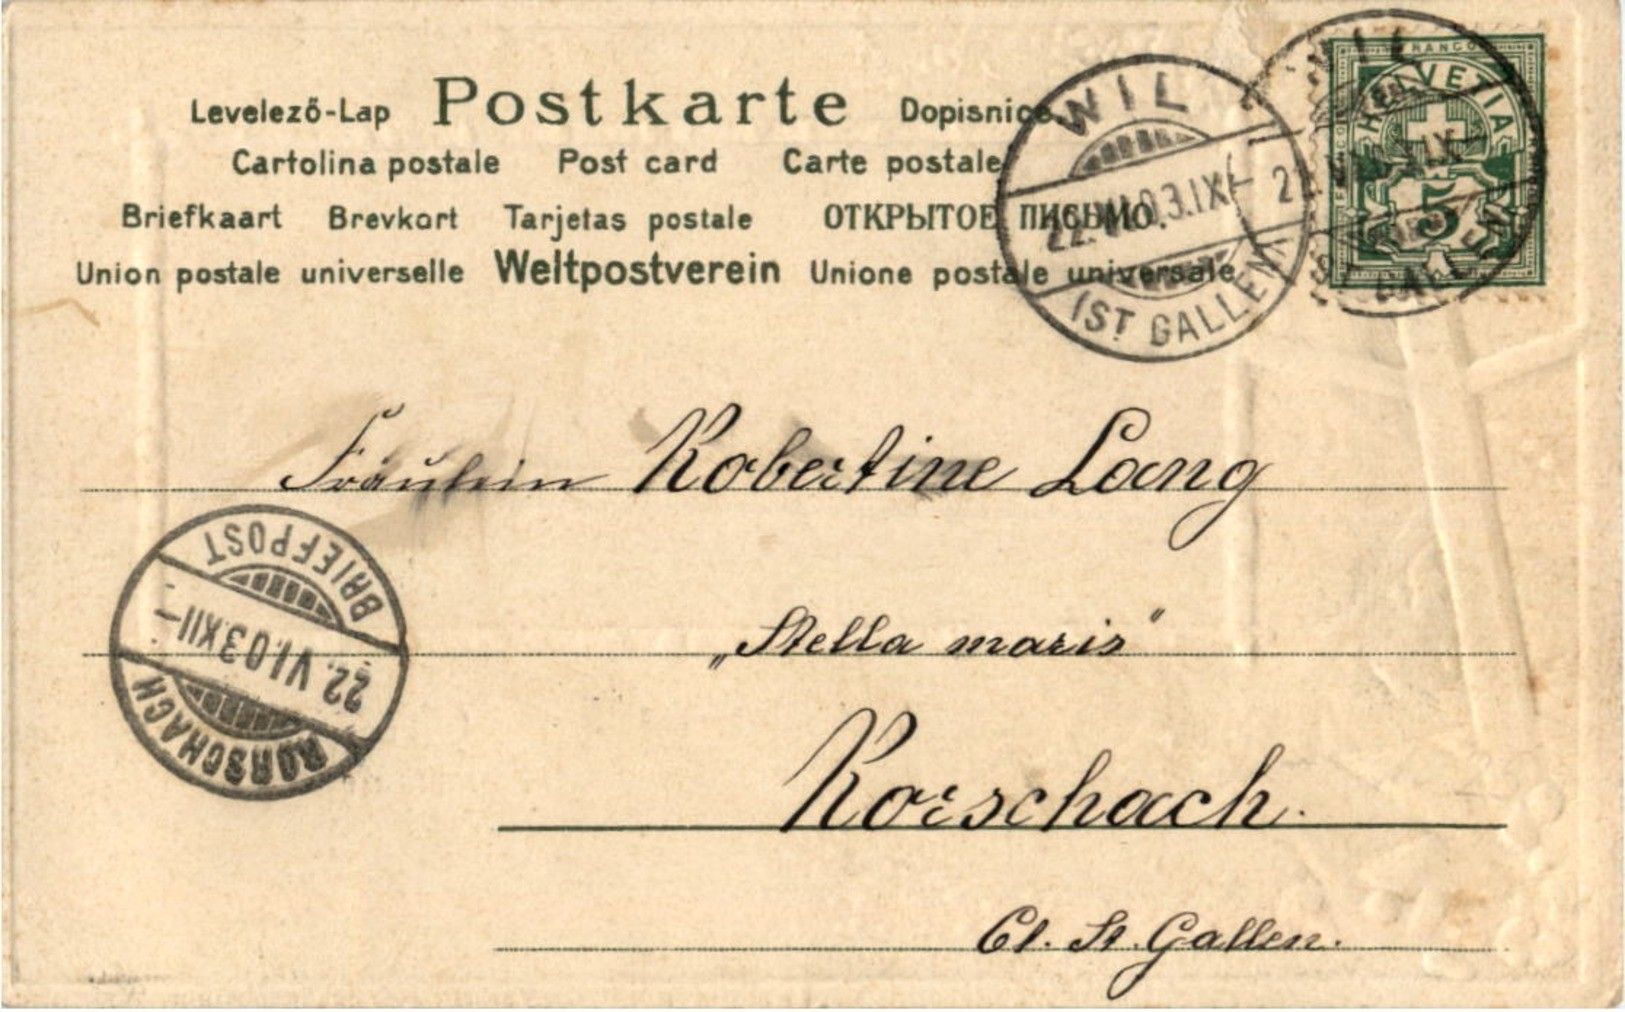 Levelező-Lap Postkarte Dopisnice.
Cartolina postale Post card Carte postale
Briefkaart Brevkort Tarjetas postale ОТКРЫТОЕ ПИСЬМО.
Union postale universelle Weltpostverein Unione postale universale
WIL
22.VI.03.IX-
(ST. GALLEN)
WIL
FRANCO
HELVETIA
5
Fräulein Robertine Lang
„Stella maris"
Rorschach.
Ct. St. Gallen.
BRIEFPOST
22.VI.03.XII-
RORSCHACH